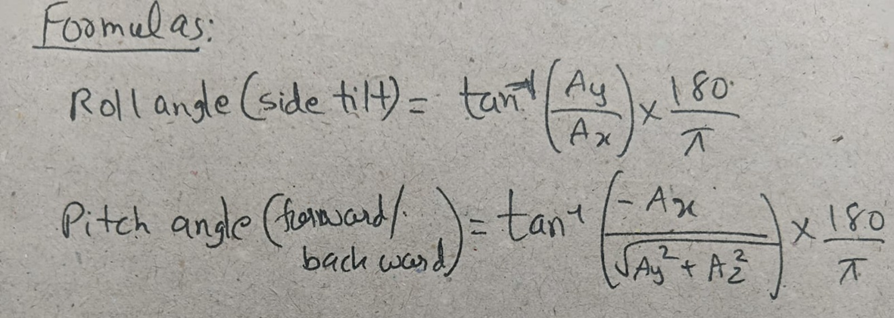 Formulas:
Roll angle (side tilt) = tan⁻¹ (Ay / Ax) × 180 / π
Pitch angle (forward / backward) = tan⁻¹ (- Ax / √(Ay² + Az²)) × 180 / π